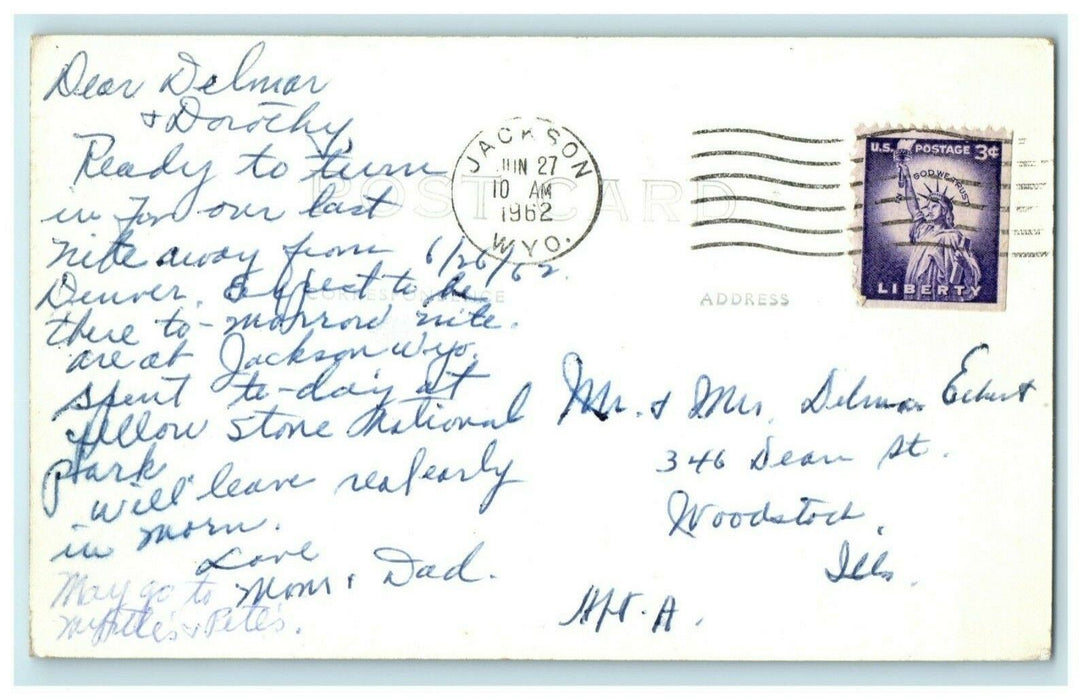 Dear Delmar
& Dorothy,
Ready to turn
in for our last
nite away from 6/26/62.
Denver. Expect to be
there to-morrow nite.
are at Jackson Wyo.
spent to-day at
yellow stone National
park
will leave real early
in morn.
Love
Mom & Dad.
May go to
Myrtle's & Pete's.
POST CARD
CORRESPONDENCE
ADDRESS
JACKSON
JUN 27
10 AM
1962
WYO.
U.S. POSTAGE 3¢
IN GOD WE TRUST
LIBERTY
Mr. & Mrs. Delmar Eckert
346 Dean St.
Woodstock,
Ills.
Apt. A.